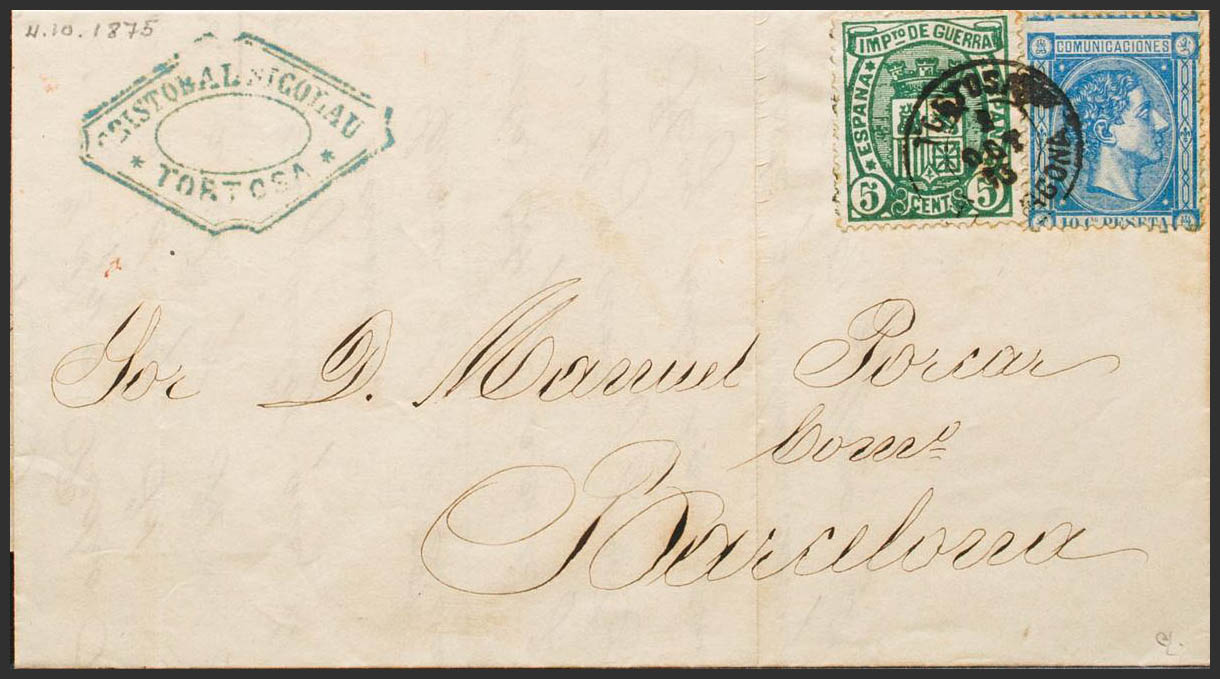 4.10.1875
CRISTOBAL NICOLAU
* TORTOSA *
IMPTO DE GUERRA
ESPAÑA
5 CENTS 5
COMUNICACIONES
10 Cs PESETA
TORTOSA
4
OCT
Sor D. Manuel Porcar
Como
Barcelona